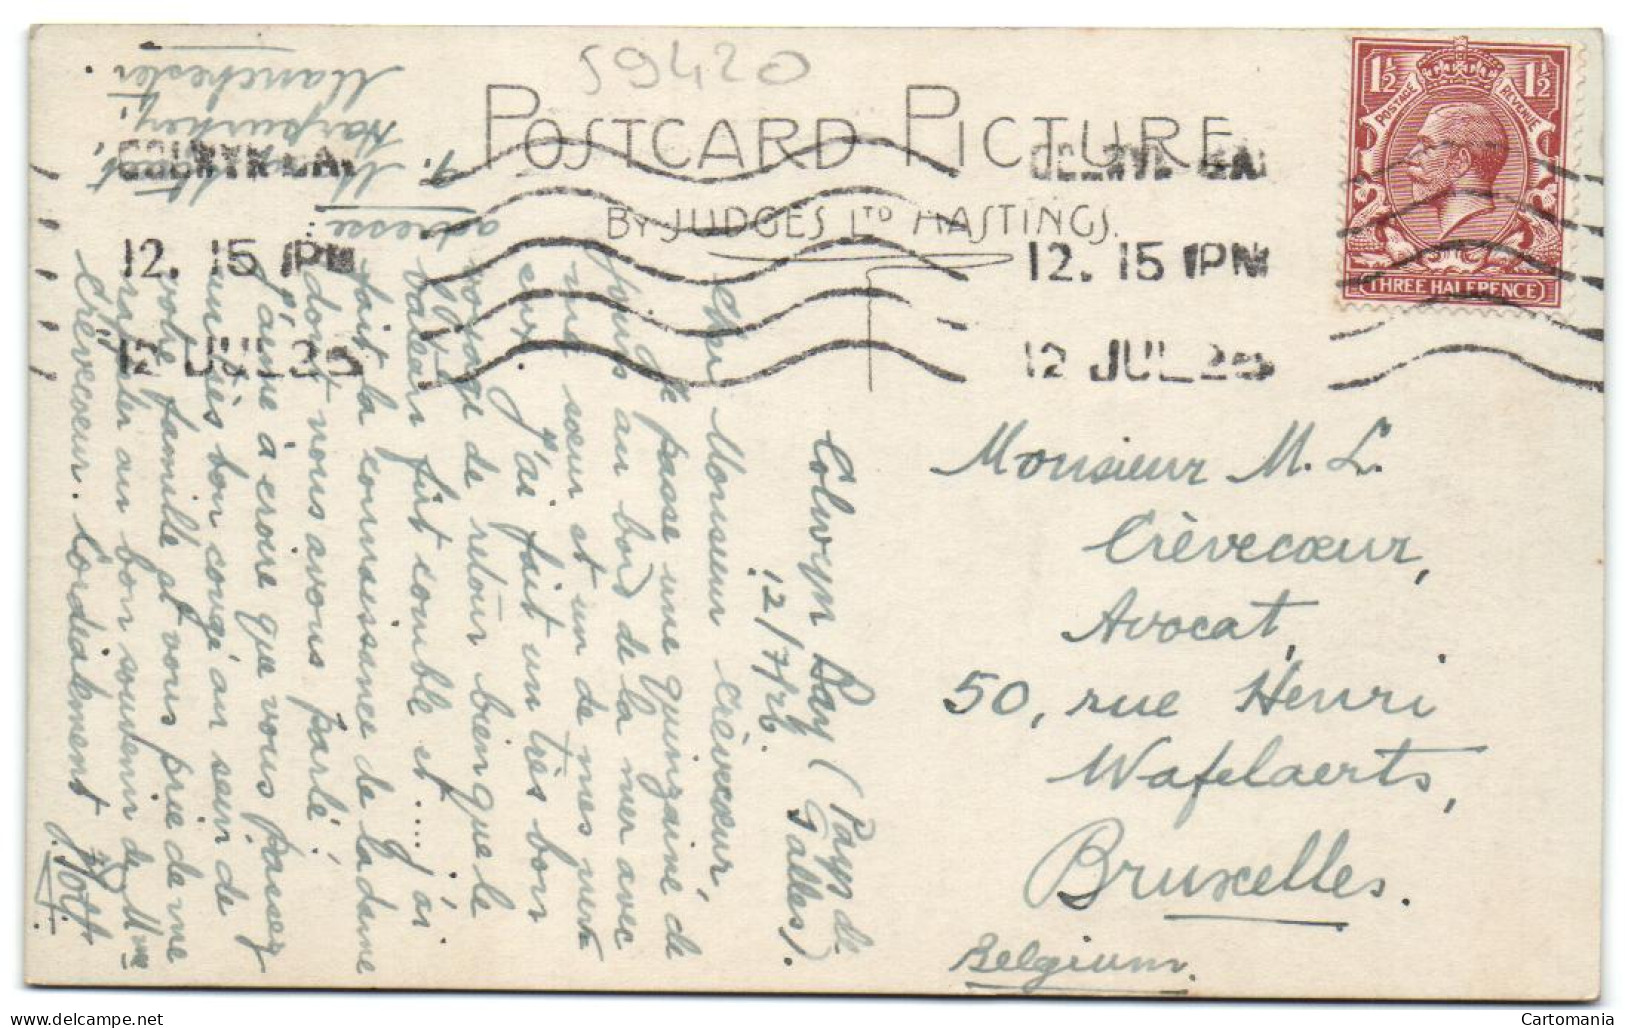 59420
POSTCARD PICTURE
BY JUDGES LTD HASTINGS.
1½ 1½
POSTAGE REVENUE
THREE HALFPENCE
COLWYN BAY
12. 15 PM
12 JUL 26
COLWYN BAY
12. 15 PM
12 JUL 26
Colwyn Bay (Pays de
Galles).
12/7/26.
Cher Monsieur Crèvecœur,
Je passe une quinzaine de
jours au bord de la mer avec
ma sœur et un de mes
J'ai fait un très bon
voyage de retour bien que le
bateau fût comble et.... j'ai
fait la connaissance de la dame
dont nous avons parlé!
J'aime à croire que vous passez
un très bon congé au sein de
votre famille et vous prie de me
rappeler au bon souvenir de Mme
Crèvecoeur. Cordialement
adresse
9,
Street,
Harpurhey,
Manchester.
Monsieur M. L.
Crèvecœur,
Avocat,
50, rue Henri
Wafelaerts,
Bruxelles.
Belgium.
Cartomania